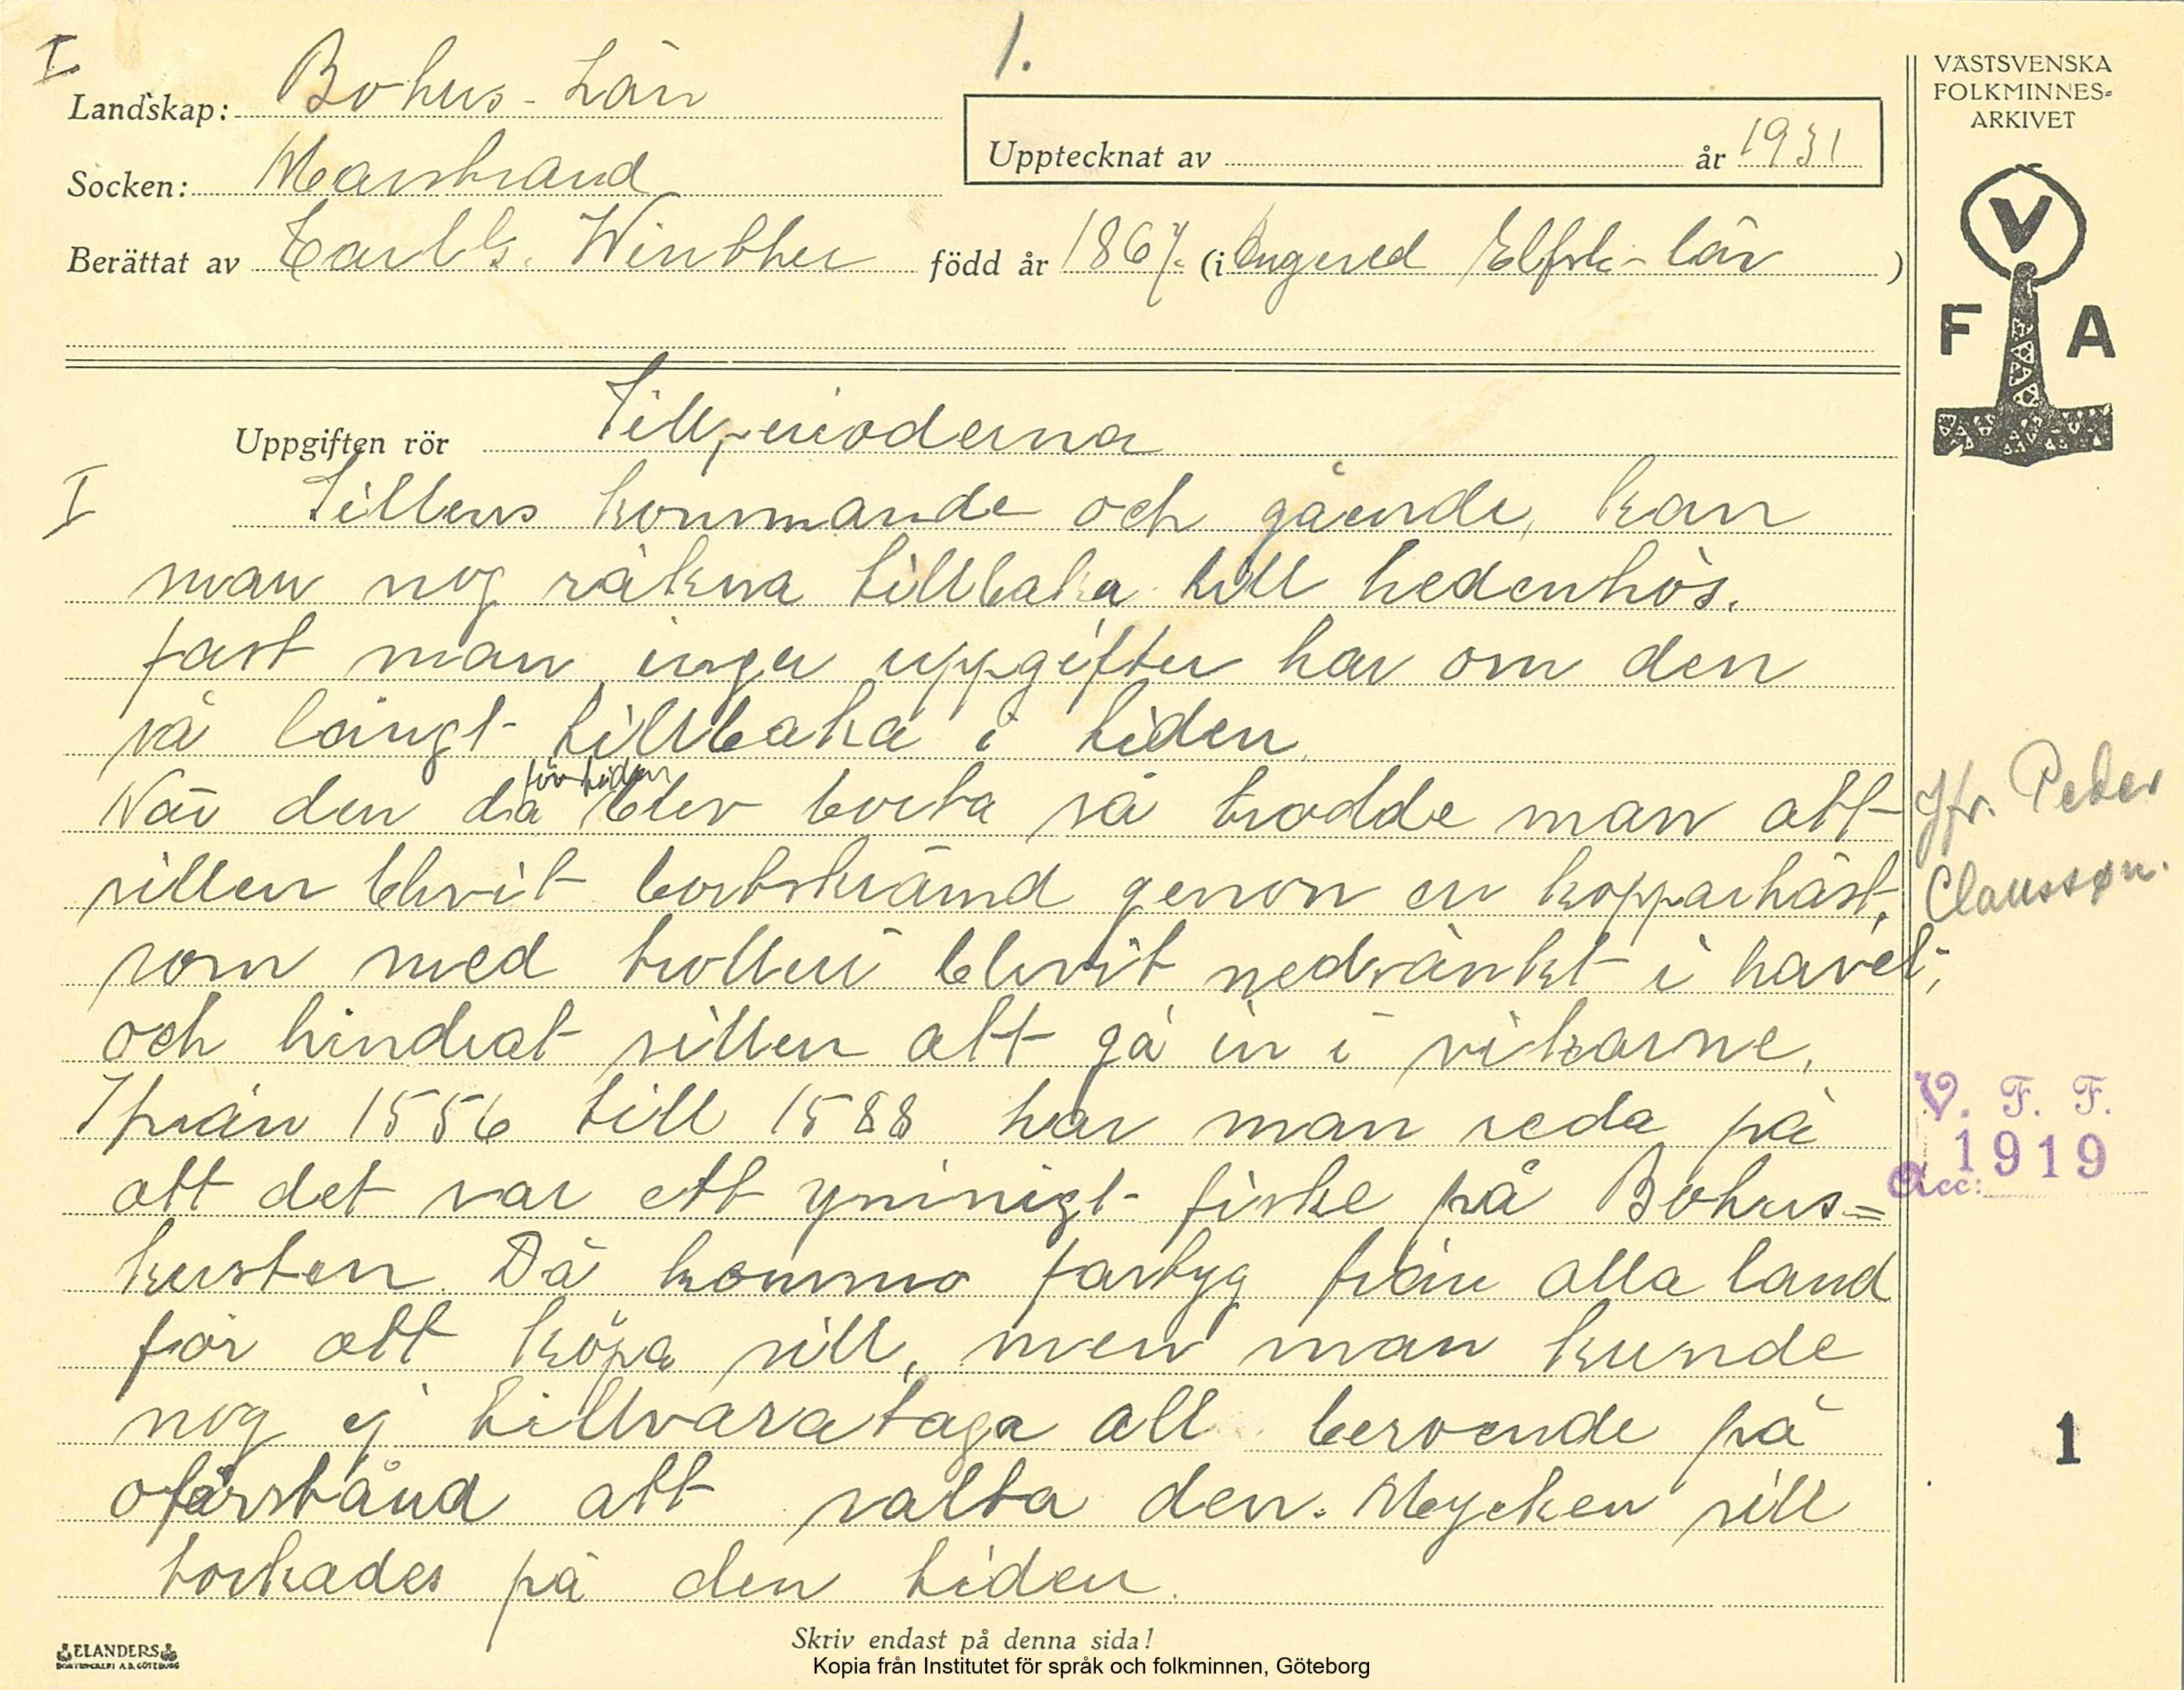 I
1.
Landskap: Bohus-Län
Socken: Marstrand
Upptecknat av år 1931
Berättat av Carl G. Winther född år 1867. (i Angered Elfsb-län)
VÄSTSVENSKA
FOLKMINNES-
ARKIVET
V
F A
Uppgiften rör Sillperioderna
I Sillens kommande och gående, kan
man nog räkna tillbaka till hedenhös.
fast man inga uppgifter har om den
så långt tillbaka i tiden.
förtiden
När den då blev borta så trodde man att
sillen blivit bortskrämd genom en kopparhäst,
som med trolleri blivit nedsänkt i havet,
och hindrat sillen att gå in i vikarne,
Ifrån 1556 till 1588 har man reda på
att det var ett ymnigt fiske på Bohus=
kusten. Då kommo fartyg från alla land
för att köpa sill, men man kunde
nog ej tillvarataga all beroende på
oförstånd att salta den. Mycken sill
torkades på den tiden.
Jfr. Peder
Claussøn.
V. F. F.
1919
Acc:
1
ELANDERS
BOKTRYCKERI A.B. GÖTEBORG
Skriv endast på denna sida!
Kopia från Institutet för språk och folkminnen, Göteborg